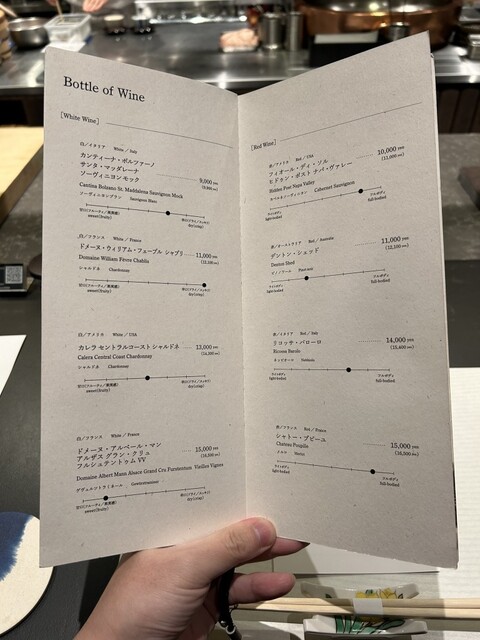 Bottle of Wine
[White Wine]
白／イタリア White / Italy
カンティーナ・ボルツァーノ
サンタ・マッダレーナ
ソーヴィニヨン モック
9,000 yen
(9,900 yen)
Cantina Bolzano St. Maddalena Sauvignon Mock
ソーヴィニヨンブラン Sauvignon Blanc
甘口(フルーティ／果実感)
sweet(fruity)
辛口(ドライ／スッキリ)
dry(crisp)
白／フランス White / France
ドメーヌ・ウィリアム・フェーブル シャブリ
11,000 yen
(12,100 yen)
Domaine William Fèvre Chablis
シャルドネ Chardonnay
甘口(フルーティ／果実感)
sweet(fruity)
辛口(ドライ／スッキリ)
dry(crisp)
白／アメリカ White / USA
カレラ セントラルコースト シャルドネ
13,000 yen
(14,300 yen)
Calera Central Coast Chardonnay
シャルドネ Chardonnay
甘口(フルーティ／果実感)
sweet(fruity)
辛口(ドライ／スッキリ)
dry(crisp)
白／フランス White / France
ドメーヌ・アルベール・マン
アルザス グラン・クリュ
フルシュテントゥム VV
15,000 yen
(16,500 yen)
Domaine Albert Mann Alsace Grand Cru Furstentum Vieilles Vignes
ゲヴュルツトラミネール Gewurztraminer
甘口(フルーティ／果実感)
sweet(fruity)
辛口(ドライ／スッキリ)
dry(crisp)
[Red Wine]
赤／アメリカ Red / USA
フィオール・ディ・ソル
ヒドゥン・ポスト ナパ・ヴァレー
10,000 yen
(11,000 yen)
Hidden Post Napa Valley
カベルネソーヴィニヨン Cabernet Sauvignon
ライトボディ
light-bodied
フルボディ
full-bodied
赤／オーストラリア Red / Australia
デントン・シェッド
11,000 yen
(12,100 yen)
Denton Shed
ピノノワール Pinot noir
ライトボディ
light-bodied
フルボディ
full-bodied
赤／イタリア Red / Italy
リコッサ・バローロ
14,000 yen
(15,400 yen)
Ricossa Barolo
ネッビオーロ Nebbiolo
ライトボディ
light-bodied
フルボディ
full-bodied
赤／フランス Red / France
シャトー・プピーユ
15,000 yen
(16,500 yen)
Chateau Poupille
メルロ Merlot
ライトボディ
light-bodied
フルボディ
full-bodied